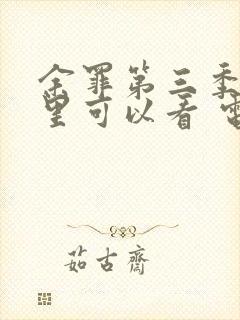 余罪第三季
里可以看 電
茹古齋